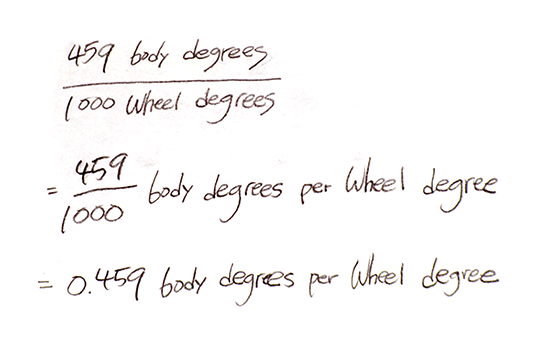 459 body degrees
1000 Wheel degrees
= 459/1000 body degrees per Wheel degree
= 0.459 body degrees per Wheel degree